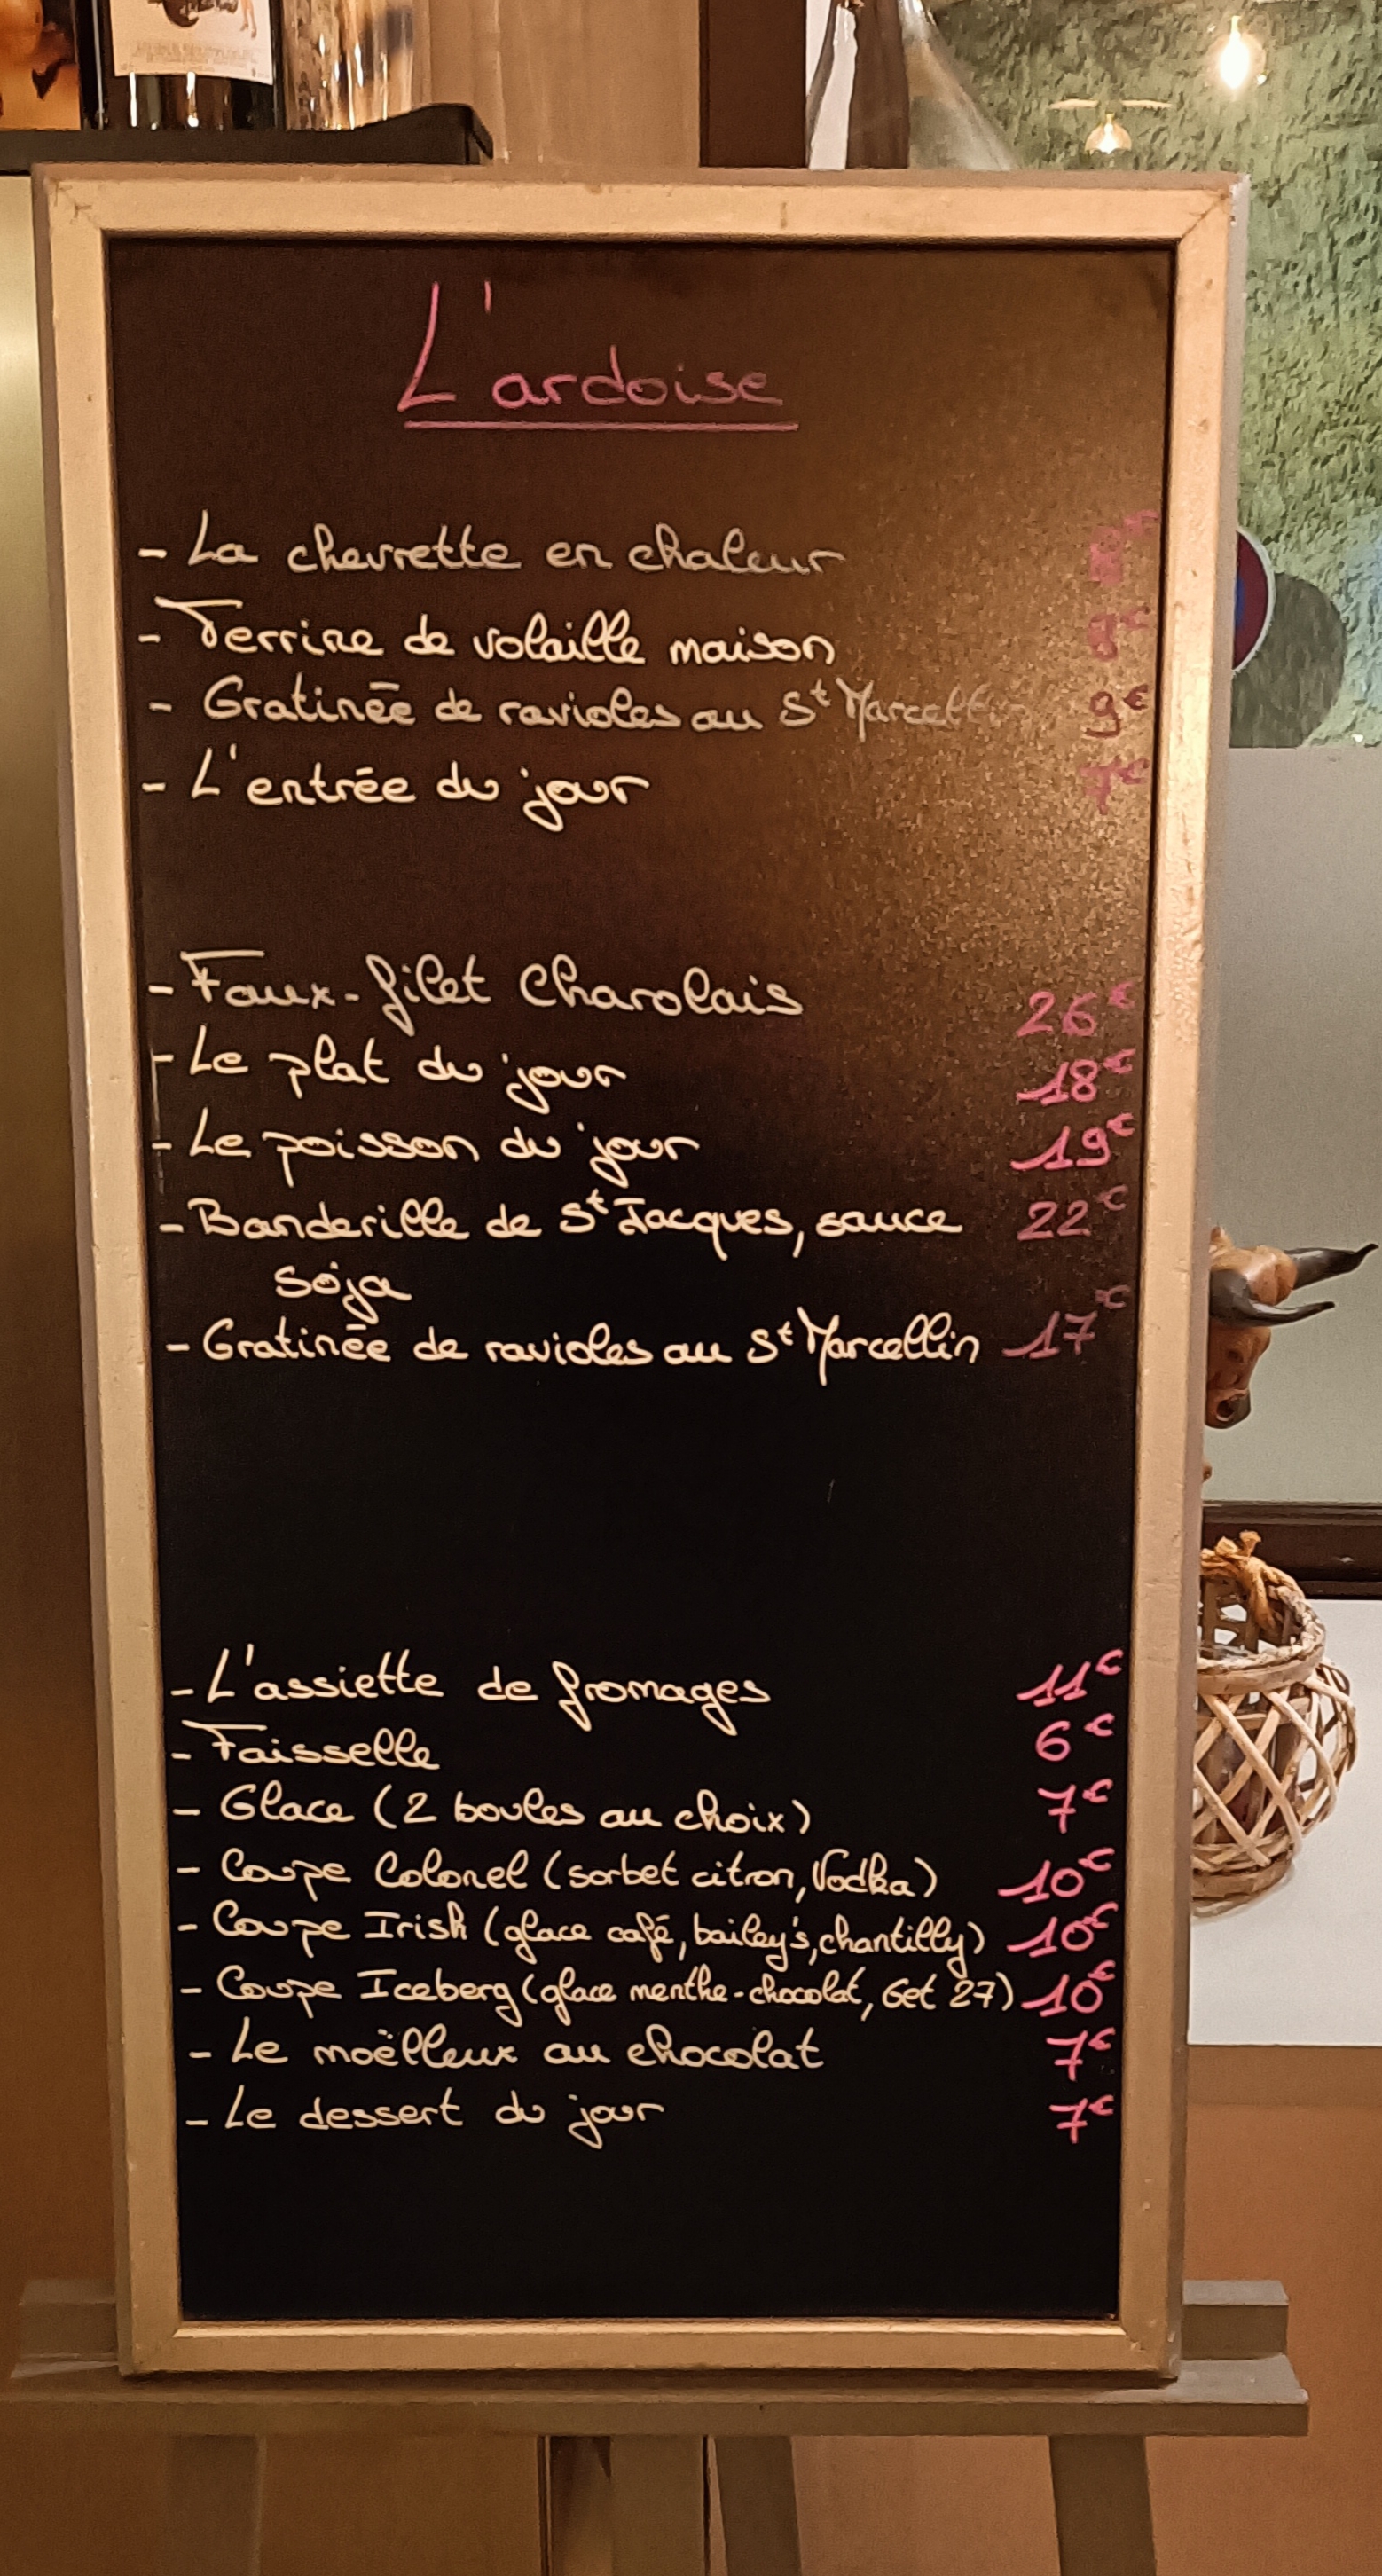 L'ardoise
- La chevrette en chaleur
- Terrine de volaille maison
- Gratinée de ravioles au St Marcellin 9€
- L'entrée du jour 7€
- Faux-filet Charolais 26€
- Le plat du jour 18€
- Le poisson du jour 19€
- Banderille de St Jacques, sauce 22€
soja
- Gratinée de ravioles au St Marcellin 17€
- L'assiette de fromages 11€
- Faisselle 6€
- Glace (2 boules au choix) 7€
- Coupe Colonel (sorbet citron, Vodka) 10€
- Coupe Irish (glace café, bailey's, chantilly) 10€
- Coupe Iceberg (glace menthe-chocolat, Get 27) 10€
- Le moëlleux au chocolat 7€
- Le dessert du jour 7€